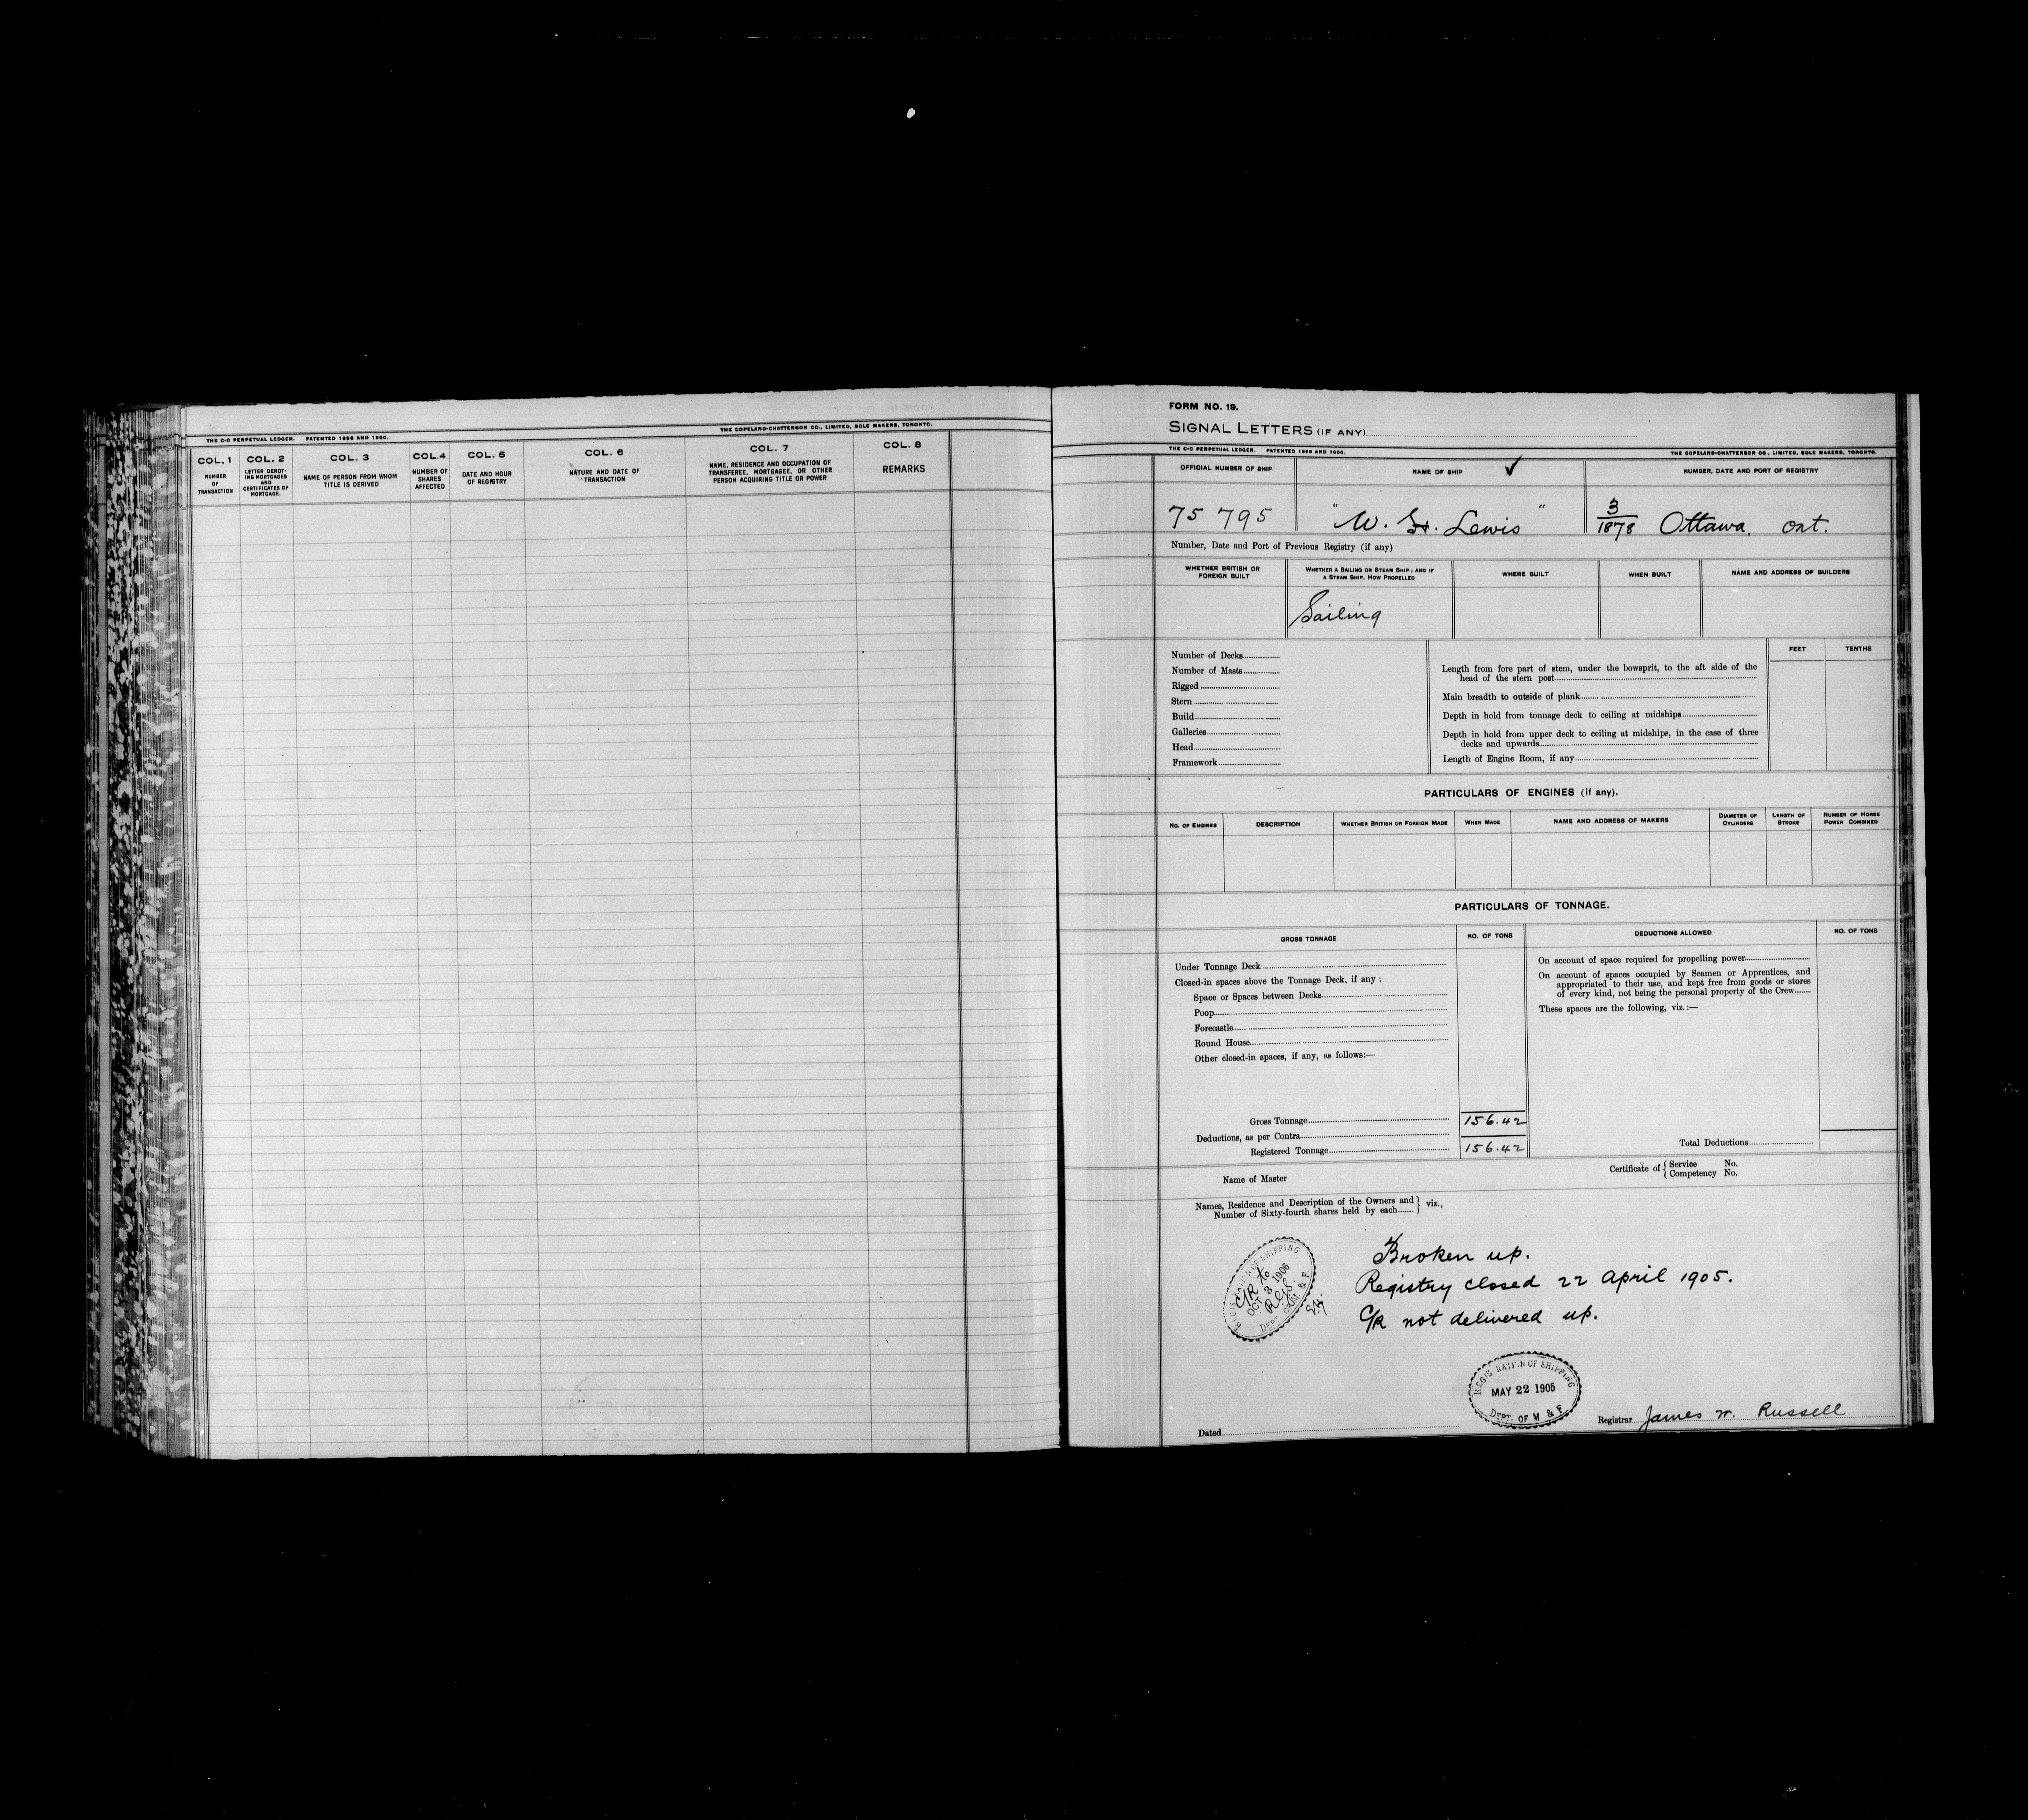 THE C-C PERPETUAL LEDGER. PATENTED 1896 AND 1900.
THE COPELAND-CHATTERSON CO., LIMITED, SOLE MAKERS, TORONTO.
COL. 1
NUMBER
OF
TRANSACTION
COL. 2
LETTER DENOT-
ING MORTGAGES
AND
CERTIFICATES OF
MORTGAGE.
COL. 3
NAME OF PERSON FROM WHOM
TITLE IS DERIVED
COL. 4
NUMBER OF
SHARES
AFFECTED
COL. 5
DATE AND HOUR
OF REGISTRY
COL. 6
NATURE AND DATE OF
TRANSACTION
COL. 7
NAME, RESIDENCE AND OCCUPATION OF
TRANSFEREE, MORTGAGEE, OR OTHER
PERSON ACQUIRING TITLE OR POWER
COL. 8
REMARKS
FORM NO. 19.
SIGNAL LETTERS (IF ANY)
THE C-C PERPETUAL LEDGER. PATENTED 1896 AND 1900.
THE COPELAND-CHATTERSON CO., LIMITED, SOLE MAKERS, TORONTO.
OFFICIAL NUMBER OF SHIP
NAME OF SHIP ✓
NUMBER, DATE AND PORT OF REGISTRY
75 795
"W. Lewis"
3/1878 Ottawa, Ont.
Number, Date and Port of Previous Registry (if any)
WHETHER BRITISH OR
FOREIGN BUILT
WHETHER A SAILING OR STEAM SHIP; AND IF
A STEAM SHIP, HOW PROPELLED
WHERE BUILT
WHEN BUILT
NAME AND ADDRESS OF BUILDERS
Sailing
Number of Decks
Number of Masts
Rigged
Stern
Build
Galleries
Head
Framework
FEET
TENTHS
Length from fore part of stem, under the bowsprit, to the aft side of the
head of the stern post
Main breadth to outside of plank
Depth in hold from tonnage deck to ceiling at midships
Depth in hold from upper deck to ceiling at midships, in the case of three
decks and upwards
Length of Engine Room, if any
PARTICULARS OF ENGINES (if any).
NO. OF ENGINES
DESCRIPTION
WHETHER BRITISH OR FOREIGN MADE
WHEN MADE
NAME AND ADDRESS OF MAKERS
DIAMETER OF
CYLINDERS
LENGTH OF
STROKE
NUMBER OF HORSE
POWER COMBINED
PARTICULARS OF TONNAGE.
GROSS TONNAGE
NO. OF TONS
DEDUCTIONS ALLOWED
NO. OF TONS
Under Tonnage Deck
Closed-in spaces above the Tonnage Deck, if any :
Space or Spaces between Decks
Poop
Forecastle
Round House
Other closed-in spaces, if any, as follows:—
On account of space required for propelling power
On account of spaces occupied by Seamen or Apprentices, and
appropriated to their use, and kept free from goods or stores
of every kind, not being the personal property of the Crew
These spaces are the following, viz.:—
Gross Tonnage 156.42
Deductions, as per Contra
Registered Tonnage 156.42
Total Deductions
Name of Master
Certificate of { Service No.
Competency No.
Names, Residence and Description of the Owners and
Number of Sixty-fourth shares held by each } viz.,
Broken up.
Registry closed 22 April 1905.
C/R not delivered up.
REGISTRATION OF SHIPPING
C/R to
OCT 8 1906
DEPT. OF M & F
REGISTRATION OF SHIPPING
MAY 22 1906
DEPT. OF M & F
Dated
Registrar James W. Russell